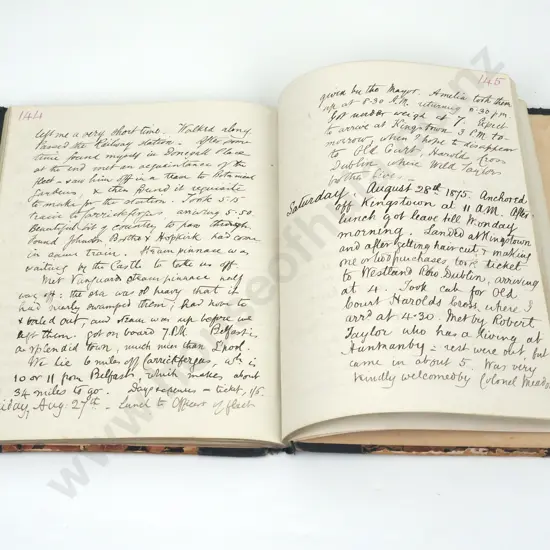 144
left me a very short time. Walked along
Passed the Railway Station. After some
time found myself in Donegall Place
at the end met an acquaintance of the
fleet & saw him off in a tram to Botanical
Gardens, & then found it requisite
to make for the station. Took 5.15
train to Carrickfergus arriving 5.50.
Beautiful bit of country to pass through.
Found Johnson Bertha & Hopkirk had come
in same train. Steam pinnace was
waiting by the Castle to take us off.
Met Vanguards steam pinnace half
way off: the sea was so heavy that it
had nearly swamped them, had hove to
& bailed out, and steam was up before we
left them. Got on board 7 P.M. Belfast is
a splendid town, much nicer than L'pool.
We lie 6 miles off Carrickfergus, wh. is
10 or 11 from Belfast, which makes about
34 miles to go. Days expenses – ticket, 1/5.
Friday, Aug: 27th – Lunch to Officers of fleet
145
given by the Mayor. Amelia took them
up at 8.30 A.M. returning 5.30 pm
Got under weigh at 7. Expect
to arrive at Kingstown 3 P.M. to-
morrow, when I hope to disappear
to Old Court, Harolds Cross
Dublin, where Wild Taylor
Saturday August 28th 1875. Anchored
off Kingstown at 11 A.M. After
lunch got leave till Monday
morning. Landed at Kingstown
and after getting hair cut, & making
one or two purchases, took ticket
to Westland Row Dublin, arriving
at 4. Took cab for Old
Court Harolds Cross, where I
arrd at 4.30. Met by Robert
Taylor who has a living at
Hunmanby – rest were out, but
came in about 5. Was very
kindly welcomed by Colonel Meadows